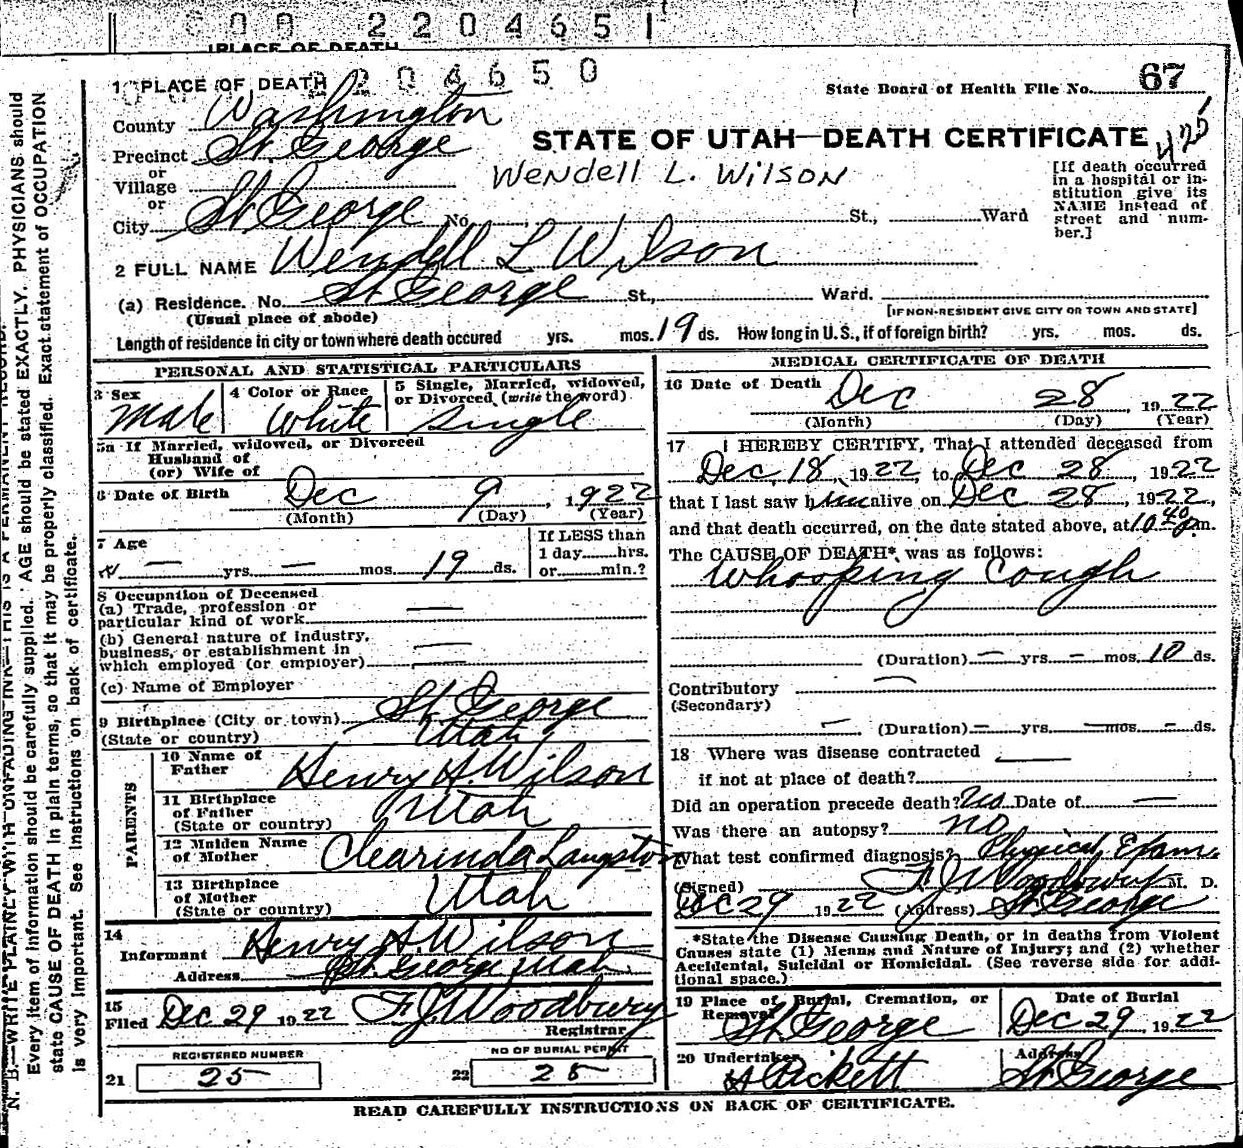 2204651
PLACE OF DEATH
204650
1 PLACE OF DEATH
State Board of Health File No. 67
County Washington
STATE OF UTAH—DEATH CERTIFICATE
Precinct St. George
or
Village
Wendell L. Wilson
[If death occurred in a hospital or institution give its NAME instead of street and number.]
or
City St George No. St., Ward
2 FULL NAME Wendell L Wilson
(a) Residence. No. St George St., Ward.
(Usual place of abode)
[IF NON-RESIDENT GIVE CITY OR TOWN AND STATE]
Length of residence in city or town where death occured yrs. mos. 19 ds. How long in U.S., if of foreign birth? yrs. mos. ds.
PERSONAL AND STATISTICAL PARTICULARS
3 Sex Male
4 Color or Race White
5 Single, Married, widowed, or Divorced (write the word) Single
5a If Married, widowed, or Divorced
Husband of
(or) Wife of
6 Date of Birth Dec 9, 1922
(Month) (Day) (Year)
7 Age
— yrs. — mos. 19 ds.
If LESS than
1 day......hrs.
or......min.?
8 Occupation of Deceased
(a) Trade, profession or
particular kind of work —
(b) General nature of industry,
business, or establishment in
which employed (or employer) —
(c) Name of Employer
9 Birthplace (City or town) St George
(State or country) Utah
PARENTS
10 Name of Father Henry H. Wilson
11 Birthplace of Father Utah
(State or country)
12 Maiden Name of Mother Clearinda Langston
13 Birthplace of Mother Utah
(State or country)
14
Informant Henry H Wilson
Address St. George Utah
15
Filed Dec 29 1922 F J Woodbury
Registrar
REGISTERED NUMBER
21 25
NO OF BURIAL PERMIT
22 25
MEDICAL CERTIFICATE OF DEATH
16 Date of Death Dec 28, 1922
(Month) (Day) (Year)
17 I HEREBY CERTIFY, That I attended deceased from
Dec 18, 1922 to Dec 28 1922
that I last saw him alive on Dec 28, 1922,
and that death occurred, on the date stated above, at 10 40 p.m.
The CAUSE OF DEATH* was as follows:
Whooping Cough
(Duration) — yrs. — mos. 10 ds.
Contributory —
(Secondary)
— (Duration) — yrs. — mos. — ds.
18 Where was disease contracted —
if not at place of death?
Did an operation precede death? No Date of —
Was there an autopsy? no
What test confirmed diagnosis? Physical Exam.
(Signed) F. J. Woodbury M. D.
Dec 29 1922 (Address) St George
*State the Disease Causing Death, or in deaths from Violent
Causes state (1) Menns and Nature of Injury; and (2) whether
Accidental, Suicidal or Homicidal. (See reverse side for addi-
tional space.)
19 Place of Burial, Cremation, or Removal St George
Date of Burial Dec 29, 1922
20 Undertaker Pickett
Address St George
READ CAREFULLY INSTRUCTIONS ON BACK OF CERTIFICATE.
N. B.—WRITE PLAINLY WITH UNFADING INK—THIS IS A PERMANENT RECORD.
Every item of information should be carefully supplied. AGE should be stated EXACTLY. PHYSICIANS should
state CAUSE OF DEATH in plain terms, so that it may be properly classified. Exact statement of OCCUPATION
is very important. See instructions on back of certificate.